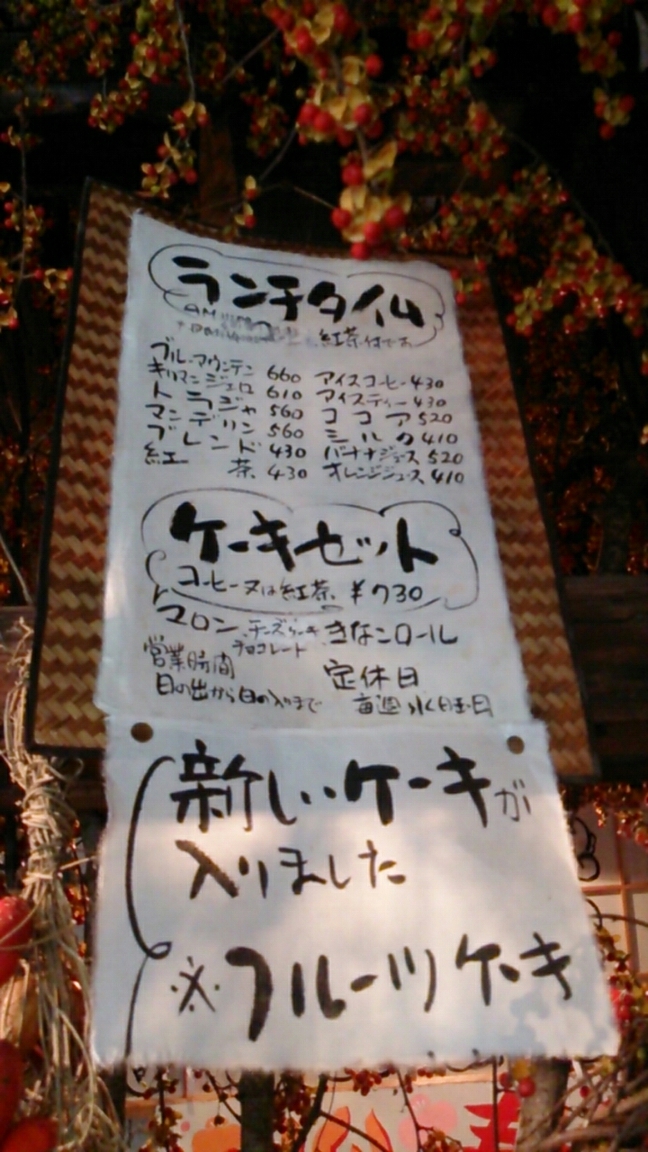 ランチタイム
AM
紅茶付です
ブルーマウンテン 660
キリマンジェロ 610
トラジャ 560
マンデリン 560
ブレンド 430
紅茶 430
アイスコーヒー 430
アイスティー 430
ココア 520
ミルク 410
バナナジュース 520
オレンジジュース 410
ケーキセット
コーヒー又は紅茶 ¥730
マロン、チーズケーキ きなこロール
チョコレート
営業時間
日の出から日の入りまで
定休日
毎週水曜日
新しいケーキが
入りました
※フルーツケーキ